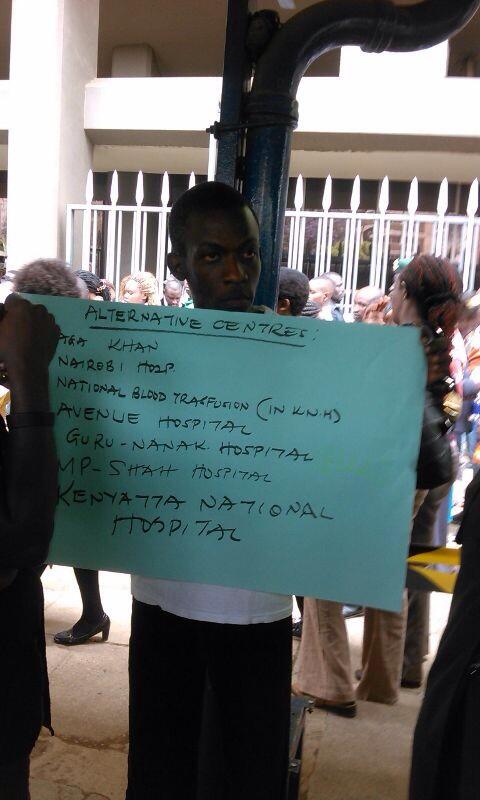 ALTERNATIVE CENTRES:
AGA KHAN
NAIROBI HOSP.
NATIONAL BLOOD TRASFUSION (IN K.N.H)
AVENUE HOSPITAL
GURU-NANAK HOSPITAL
MP-SHAH HOSPITAL
KENYATTA NATIONAL
HOSPITAL